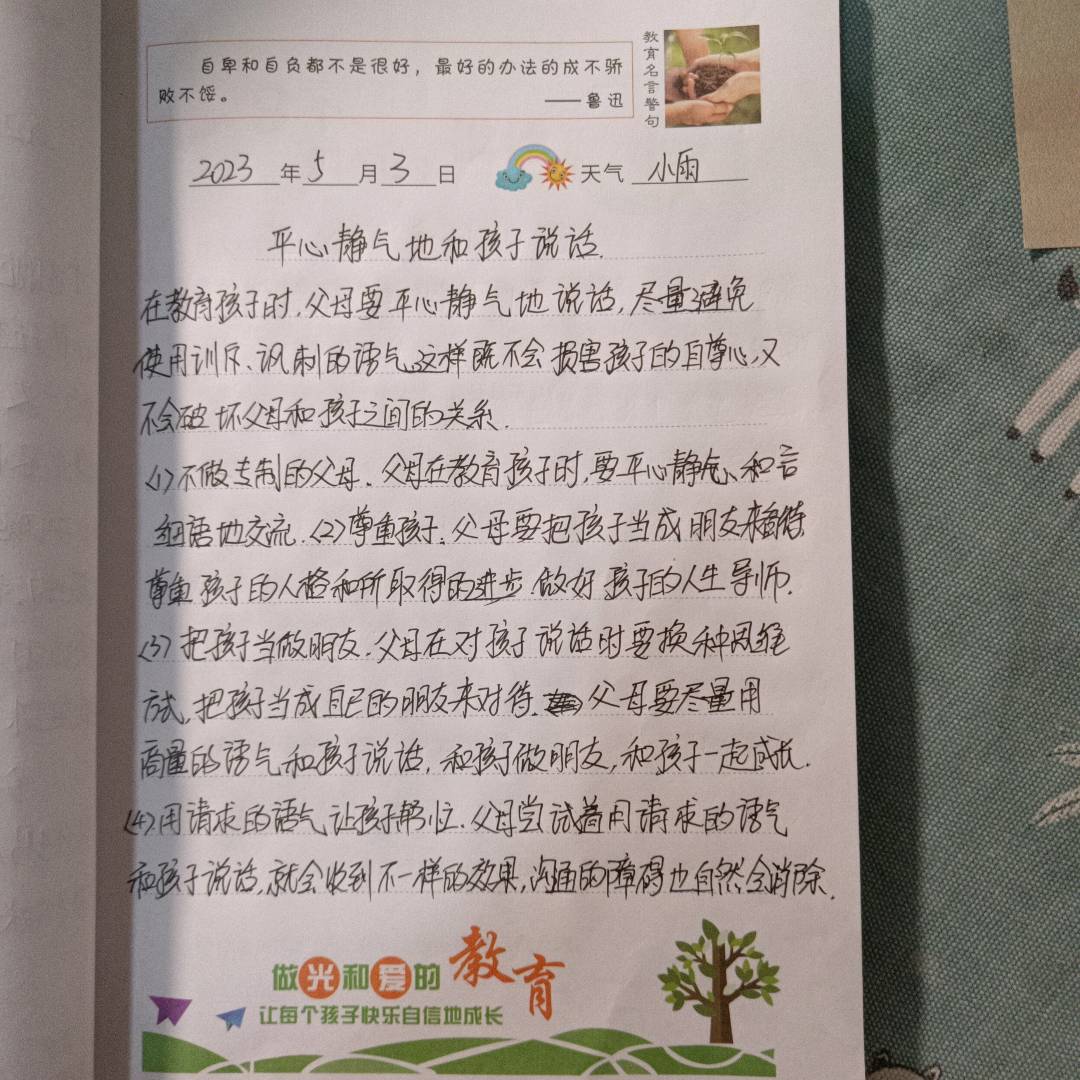 自卑和自负都不是很好，最好的办法的成不骄
败不馁。
——鲁迅
教育名言警句
2023年5月3日 天气 小雨
平心静气地和孩子说话.
在教育孩子时,父母要平心静气地说话,尽量避免
使用训斥、讽制的语气,这样既不会损害孩子的自尊心,又
不会破坏父母和孩子之间的关系.
(1)不做专制的父母.父母在教育孩子时,要平心静气、和言
细语地交流.(2)尊重孩子.父母要把孩子当成朋友来看待,
尊重孩子的人格和所取得的进步.做好孩子的人生导师.
(3)把孩子当做朋友.父母在对孩子说话时要换种思维
方式,把孩子当成自己的朋友来对待.父母要尽量用
商量的语气和孩子说话,和孩子做朋友,和孩子一起成长.
(4)用请求的语气让孩子帮忙.父母尝试着用请求的语气
和孩子说话,就会收到不一样的效果,沟通的障碍也自然会消除.
做光和爱的教育
让每个孩子快乐自信地成长